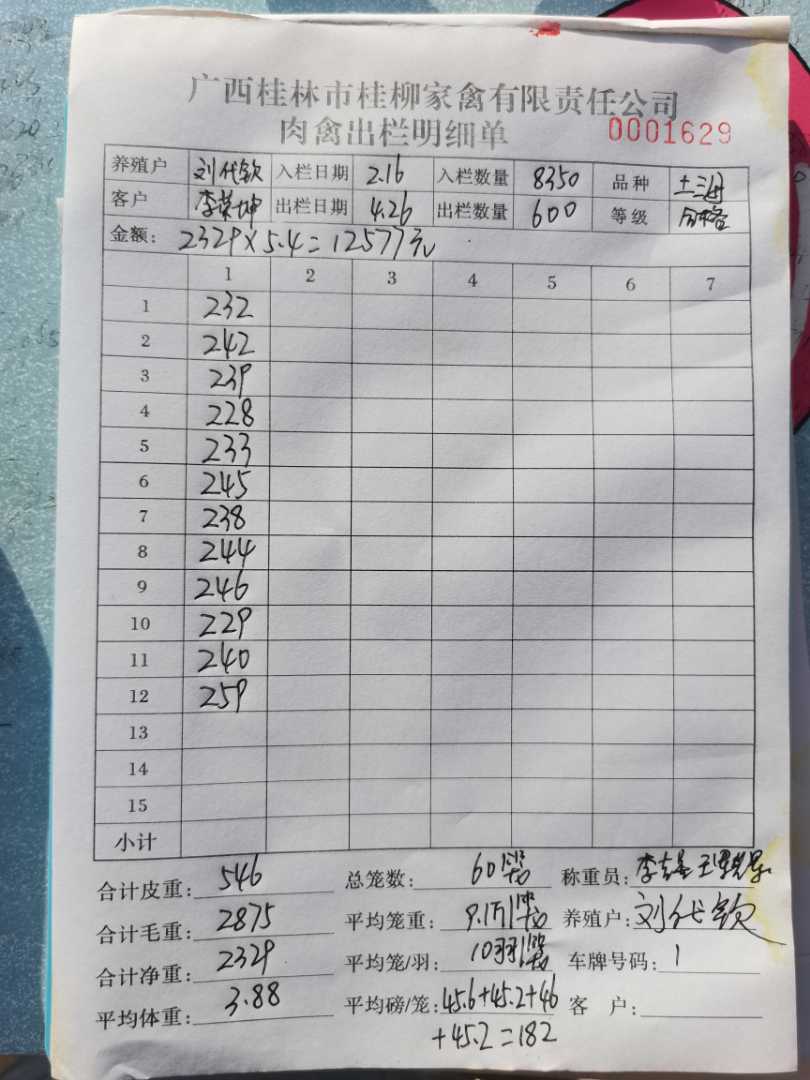 广西桂林市桂柳家禽有限责任公司
肉禽出栏明细单 0001629
养殖户 刘代钦 入栏日期 2.16 入栏数量 8350 品种 土三母
客户 李荣坤 出栏日期 4.26 出栏数量 600 等级 合格
金额: 2329×5.4=12577元
1 2 3 4 5 6 7
1 232
2 242
3 239
4 228
5 233
6 245
7 238
8 244
9 246
10 229
11 240
12 259
13
14
15
小计
合计皮重: 546 总笼数: 60笼 称重员:
合计毛重: 2875 平均笼重: 9.1斤/笼 养殖户: 刘代钦
合计净重: 2329 平均笼/羽: 10羽/笼 车牌号码: 1
平均体重: 3.88 平均磅/笼: 45.6+45.2+46 客 户:
+45.2=182